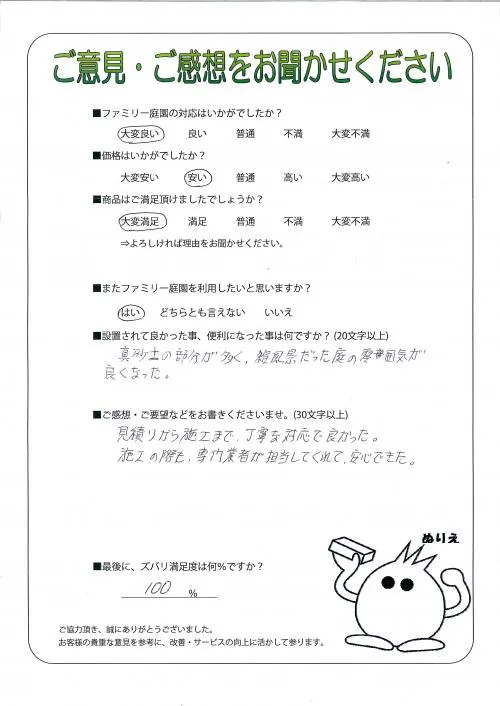 ご意見・ご感想をお聞かせください
■ファミリー庭園の対応はいかがでしたか？
大変良い 良い 普通 不満 大変不満
■価格はいかがでしたか？
大変安い 安い 普通 高い 大変高い
■商品はご満足頂けましたでしょうか？
大変満足 満足 普通 不満 大変不満
⇒よろしければ理由をお聞かせください。
■またファミリー庭園を利用したいと思いますか？
はい どちらとも言えない いいえ
■設置されて良かった事、便利になった事は何ですか？(20文字以上)
真砂土の部分が多く、殺風景だった庭の雰囲気が
良くなった。
■ご感想・ご要望などをお書きくださいませ。(30文字以上)
見積りから施工まで、丁寧な対応で良かった。
施工の際も、専門業者が担当してくれて、安心できた。
ぬりえ
■最後に、ズバリ満足度は何％ですか？
100 %
ご協力頂き、誠にありがとうございました。
お客様の貴重な意見を参考に、改善・サービスの向上に活かして参ります。